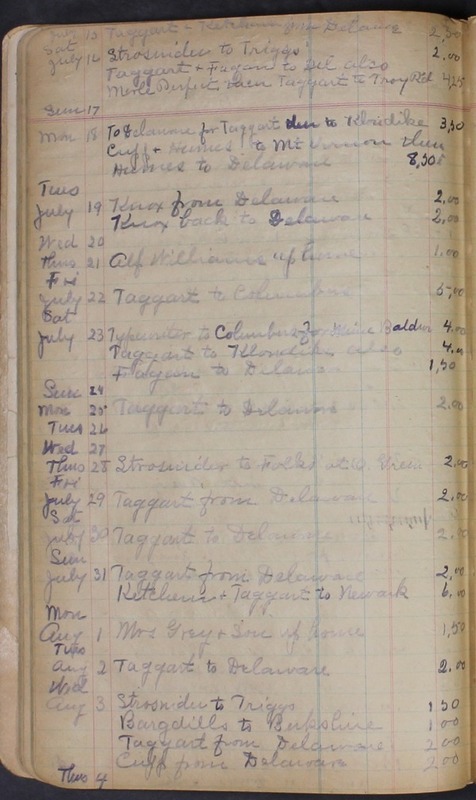 July 15 Taggart - Ketchum from Delaware 2,50
Sat
July 16 Strosnider to Triggs 2.00
Taggart + Fagan to Del also
More Perfect then Taggart to Troy Rd 4,25
Sun 17
Mon 18 To Delaware for Taggart then to Klondike 3,50
Cuff + Humes to Mt Vernon then
Humes to Delaware 8,50
Tues
July 19 Knox from Delaware 2.00
Knox back to Delaware 2,00
Wed 20
Thus 21 Alf Williams up home 1.00
Fri
July 22 Taggart to Columbus 5.00
Sat
July 23 Typewriter to Columbus for Baldin 4.00
Taggart to Klondike also 4.00
Fagan to Delaware 1,50
Sun 24
Mon 25 Taggart to Delaware 2.00
Tues 26
Wed 27
Thus 28 Strosnider to Folks at 2.00
Fri
July 29 Taggart from Delaware 2.00
Sat
July 30 Taggart to Delaware 2.00
Sun
July 31 Taggart from Delaware 2,00
Ketchum + Taggart to Newark 6.00
Mon
Aug 1 Mrs Grey + Son up home 1,50
Tues
Aug 2 Taggart to Delaware 2.00
Wed
Aug 3 Strosnider to Triggs 1 50
Bargdills to Berkshire 1 00
Taggart from Delaware 2 00
Cuff from Delaware 2 00
Thus 4